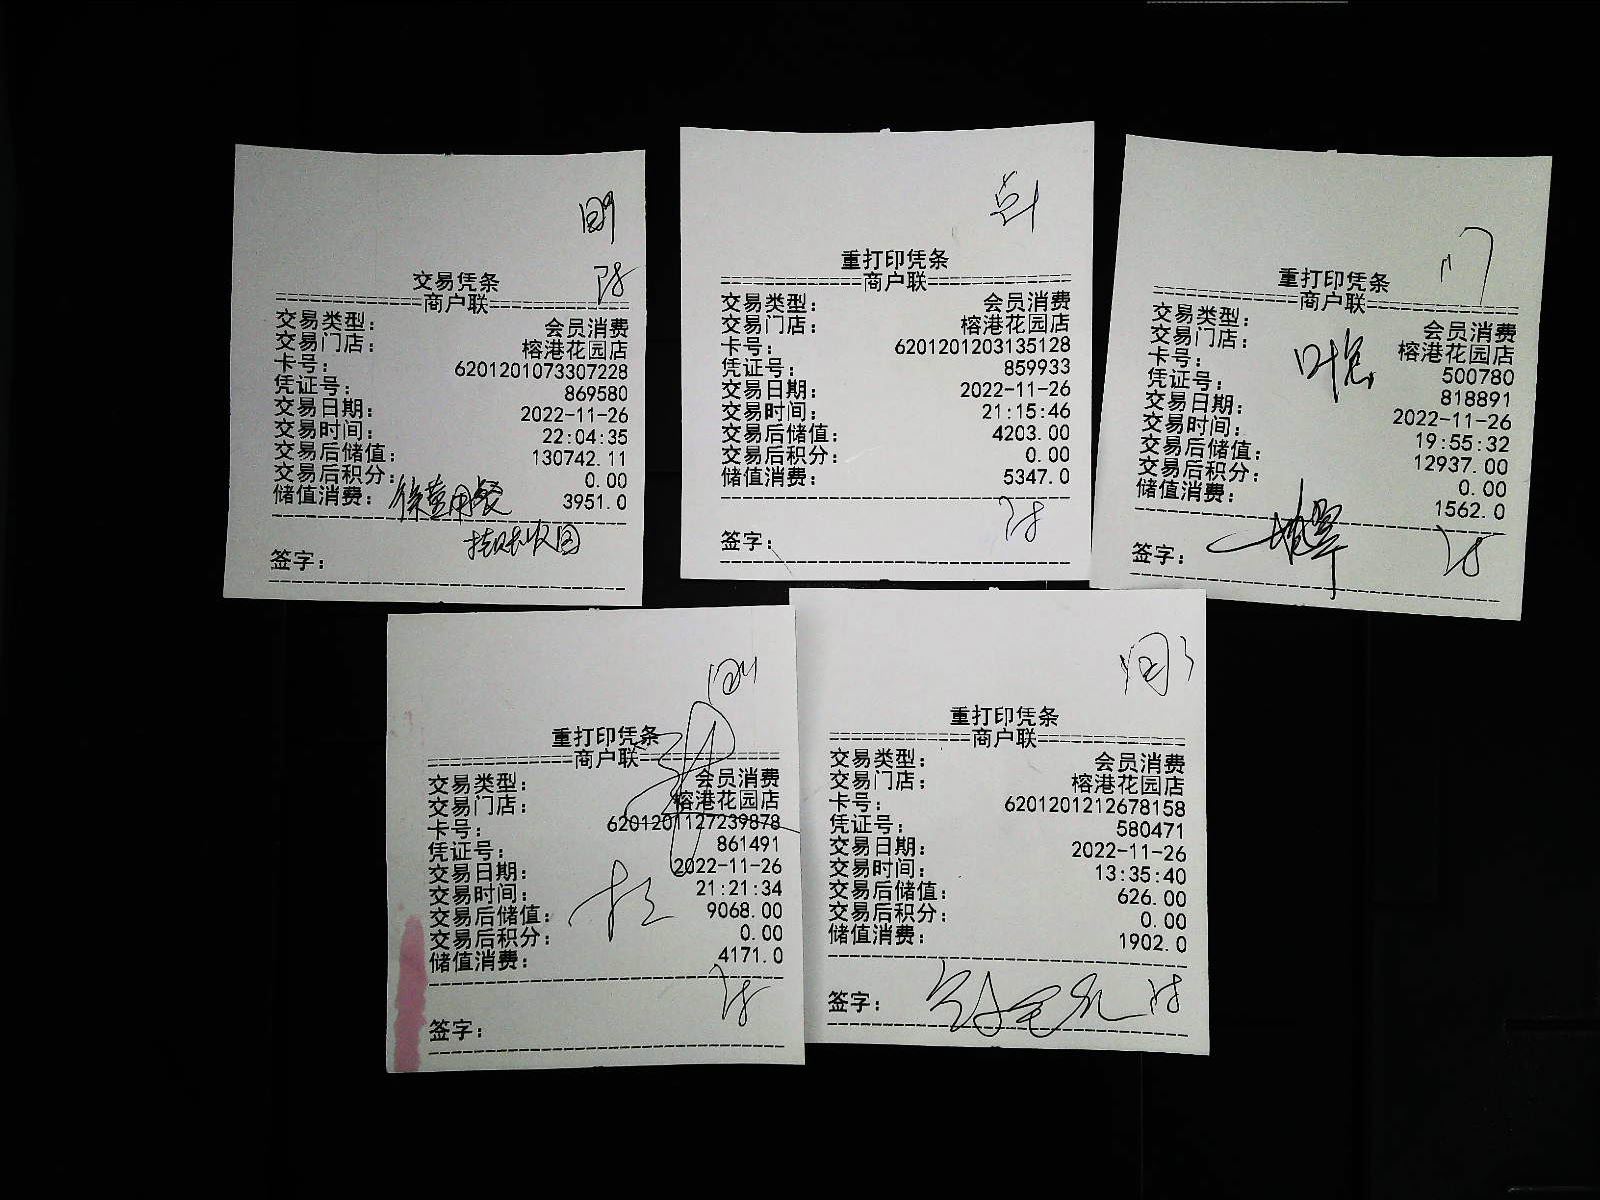 交易凭条
商户联
交易类型： 会员消费
交易门店： 榕港花园店
卡号： 6201201073307228
凭证号： 869580
交易日期： 2022-11-26
交易时间： 22:04:35
交易后储值： 130742.11
交易后积分： 0.00
储值消费： 3951.0
签字：
重打印凭条
商户联
交易类型： 会员消费
交易门店： 榕港花园店
卡号： 6201201203135128
凭证号： 859933
交易日期： 2022-11-26
交易时间： 21:15:46
交易后储值： 4203.00
交易后积分： 0.00
储值消费： 5347.0
签字：
重打印凭条
商户联
交易类型： 会员消费
交易门店： 榕港花园店
卡号： 500780
凭证号： 818891
交易日期： 2022-11-26
交易时间： 19:55:32
交易后储值： 12937.00
交易后积分： 0.00
储值消费： 1562.0
签字：
重打印凭条
商户联
交易类型： 会员消费
交易门店： 榕港花园店
卡号： 6201201127239878
凭证号： 861491
交易日期： 2022-11-26
交易时间： 21:21:34
交易后储值： 9068.00
交易后积分： 0.00
储值消费： 4171.0
签字：
重打印凭条
商户联
交易类型： 会员消费
交易门店： 榕港花园店
卡号： 6201201212678158
凭证号： 580471
交易日期： 2022-11-26
交易时间： 13:35:40
交易后储值： 626.00
交易后积分： 0.00
储值消费： 1902.0
签字：